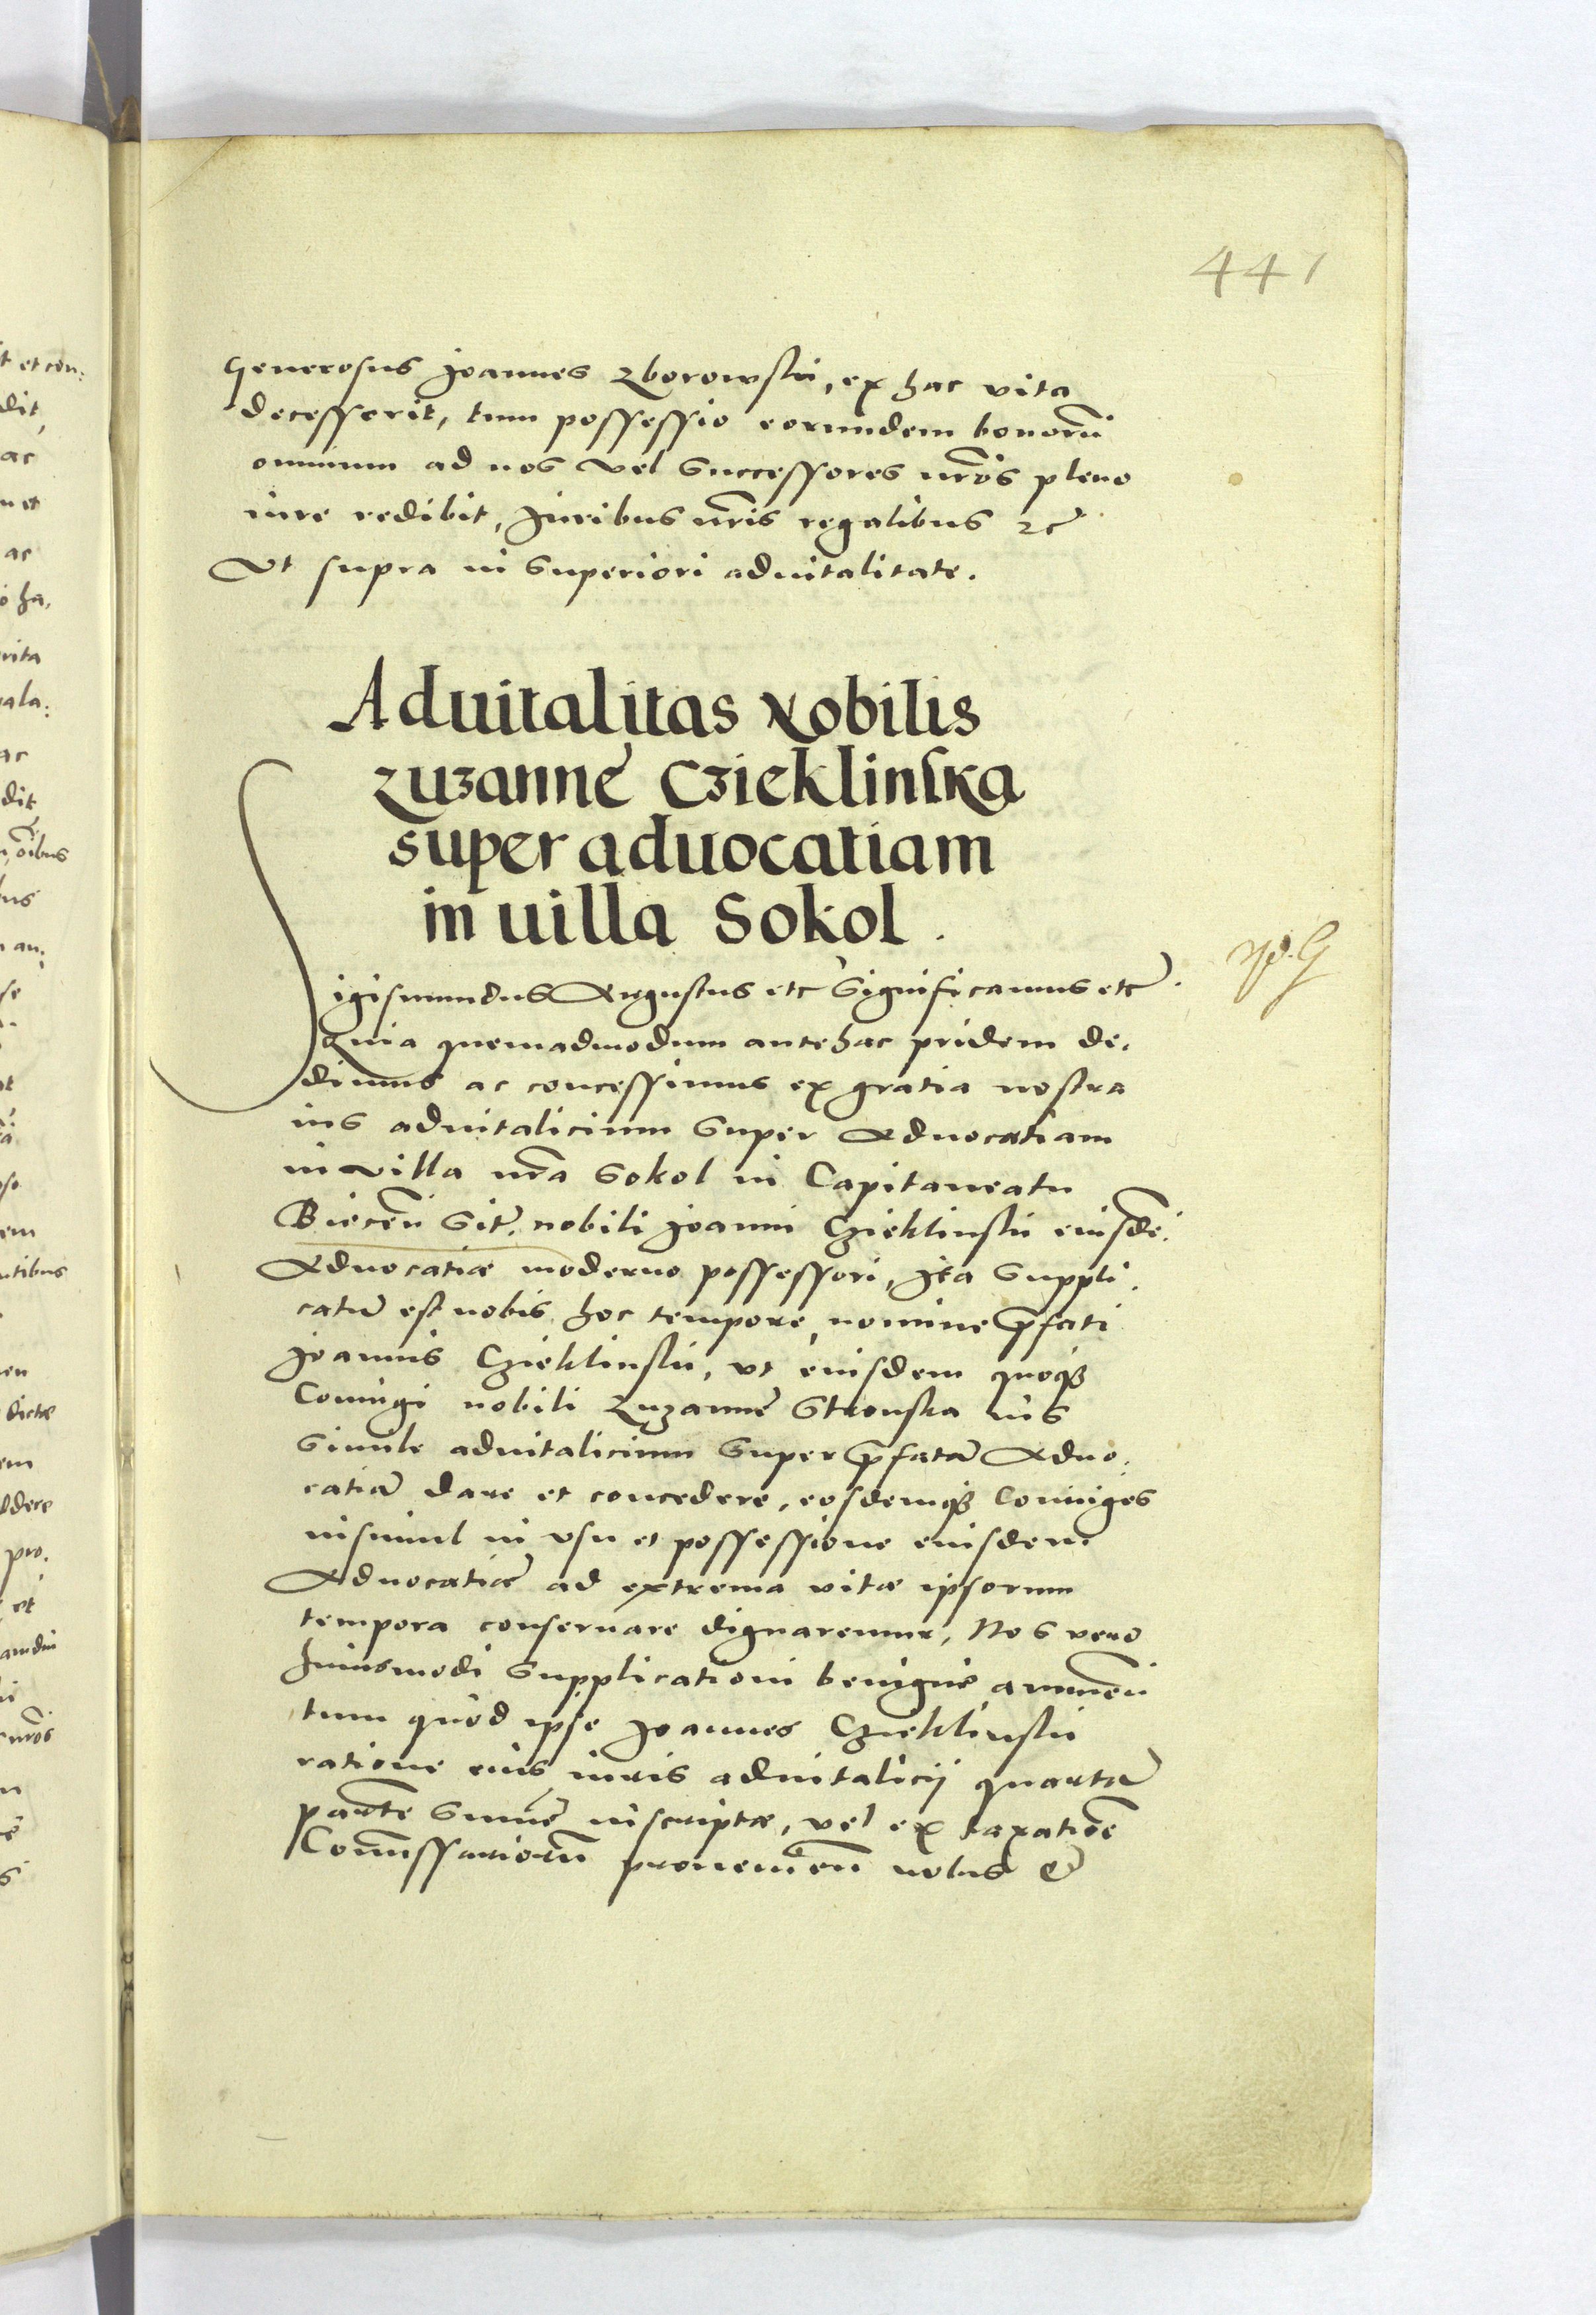 441
Generosus Joannes Zborowski, ex hac vita
decesserit, tum possessio eorundem bonorũ
omnium ad nos vel Successores nr̃os pleno
iure redibit, Juribus nr̃is regalibus etc̃
Vt supra in Superiori aduitalitate.
Aduitalitas Nobilis
Zuzanne Czieklinska
super aduocatiam
in uilla Sokol.
Sigismundus Augustus etc Significamus etc̃.
Quia quemadmodum antehac pridem de,
dimus ac concessimus ex gratia nostra
ius aduitalicium Super Aduocatiam
in villa nr̃a Sokol in Capitaneatu
Biecẽn Sit̃. nobili Joanni Czieklinskii eiusdẽ,
Aduocatiæ moderno possessori, Ita Suppli,
catũ est nobis hoc tempore, nomine p̃fati
Joannis Czieklinskii, vt eiusdem quoqꝫ
Coniugi nobili Zuzanne Stronska ius
Simile aduitalicium Super p̃fatã Aduo,
catiã dare et concedere, eosdemqꝫ Coniuges
insimul in vsu et possessione eiusdem
Aduocatiæ ad extrema vitæ ipsorum
tempora conseruare dignaremur, Nos vero
huiusmodi Supplicationi benigne annuẽn
tum quod ipse Joannes Czieklinskii
ratione eius iuris aduitalicij quartã
partẽ Summæ inscriptæ, vel ex taxatiõe
Comissariorũ prouenieñ nobis et